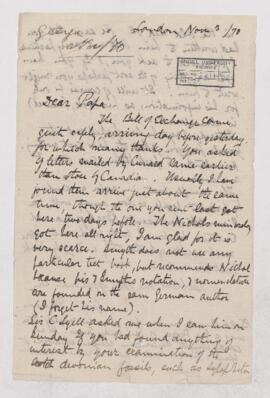 George
London Nov 3 /70
McGILL UNIVERSITY
ARCHIVES
Dear Papa
The Bill of Exchange came
quite safely, arriving day before yesterday
for which many thanks. You asked
if letters mailed by Cunard came earlier
than those by Canadian. Usually I have
found them arrive just about the same
time, though the one you sent last got
here two days before. The Nichols mineralogy
got here all right, I am glad for it is
very scarce. Smyth does not use any
particular text book, but recommends Nichol
because his & Smyths notation, & nomenclature
are founded on the same German author
(I forget his name).
Sir C Lyell asked me when I saw him on
Sunday if you had found anything of
interest by your examination of the
devonian fossils, such as